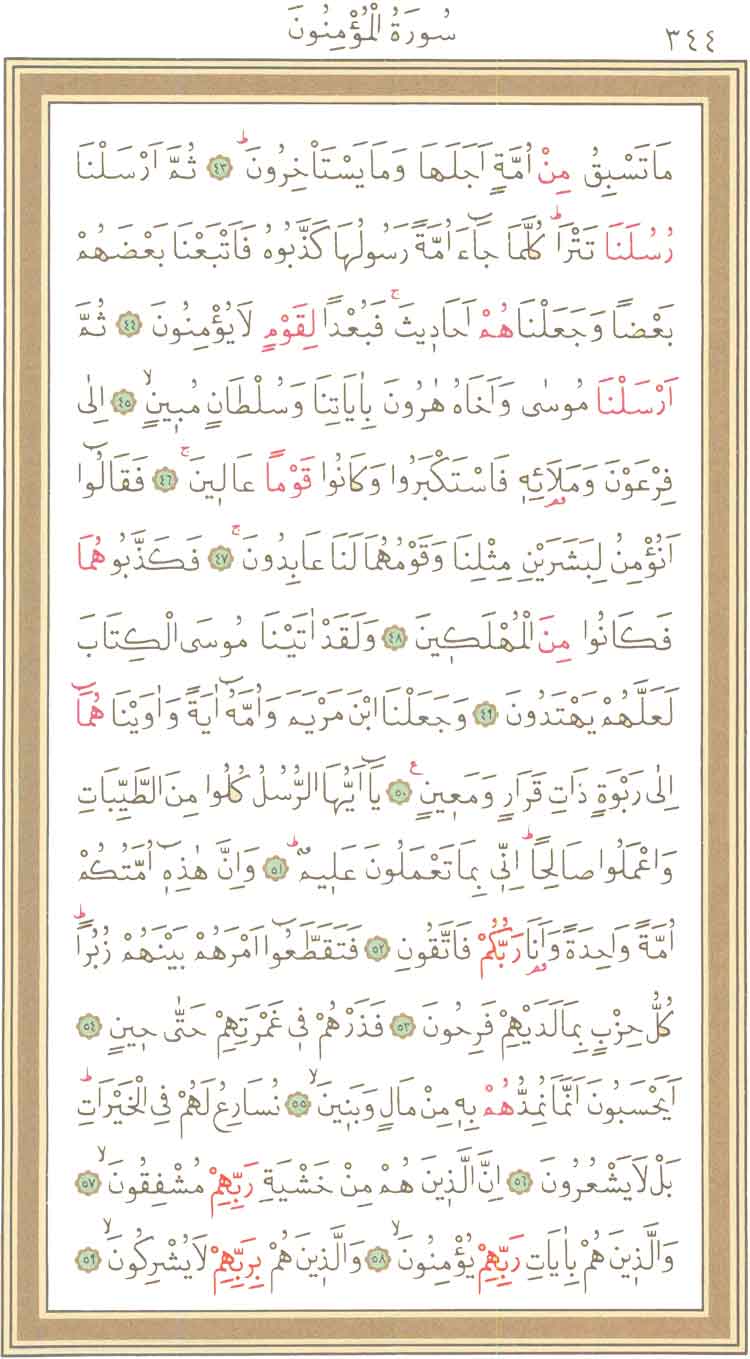 سُورَةُ الْمُؤْمِنُونَ
٣٤٤
مَا تَسْبِقُ مِنْ اُمَّةٍ اَجَلَهَا وَمَا يَسْتَأْخِرُونَۜ ﴿٤٣﴾ ثُمَّ اَرْسَلْنَا
رُسُلَنَا تَتْرَاۜ كُلَّمَا جَٓاءَ اُمَّةً رَسُولُهَا كَذَّبُوهُ فَاَتْبَعْنَا بَعْضَهُمْ
بَعْضًا وَجَعَلْنَاهُمْ اَحَاد۪يثَۚ فَبُعْدًا لِقَوْمٍ لَا يُؤْمِنُونَ ﴿٤٤﴾ ثُمَّ
اَرْسَلْنَا مُوسٰى وَاَخَاهُ هٰرُونَ بِاٰيَاتِنَا وَسُلْطَانٍ مُب۪ينٍۙ ﴿٤٥﴾ اِلٰى
فِرْعَوْنَ وَمَلَا۬ئِه۪ فَاسْتَكْبَرُوا وَكَانُوا قَوْمًا عَال۪ينَۚ ﴿٤٦﴾ فَقَالُٓوا
اَنُؤْمِنُ لِبَشَرَيْنِ مِثْلِنَا وَقَوْمُهُمَا لَنَا عَابِدُونَۚ ﴿٤٧﴾ فَكَذَّبُوهُمَا
فَكَانُوا مِنَ الْمُهْلَك۪ينَ ﴿٤٨﴾ وَلَقَدْ اٰتَيْنَا مُوسَى الْكِتَابَ
لَعَلَّهُمْ يَهْتَدُونَ ﴿٤٩﴾ وَجَعَلْنَا ابْنَ مَرْيَمَ وَاُمَّهُٓ اٰيَةً وَاٰوَيْنَاهُمَٓا
اِلٰى رَبْوَةٍ ذَاتِ قَرَارٍ وَمَع۪ينٍ۟ ﴿٥٠﴾ يَٓا اَيُّهَا الرُّسُلُ كُلُوا مِنَ الطَّيِّبَاتِ
وَاعْمَلُوا صَالِحًاۜ اِنّ۪ي بِمَا تَعْمَلُونَ عَل۪يمٌۜ ﴿٥١﴾ وَاِنَّ هٰذِه۪ٓ اُمَّتُكُمْ
اُمَّةً وَاحِدَةً وَاَنَا۬ رَبُّكُمْ فَاتَّقُونِ ﴿٥٢﴾ فَتَقَطَّعُٓوا اَمْرَهُمْ بَيْنَهُمْ زُبُرًاۜ
كُلُّ حِزْبٍ بِمَا لَدَيْهِمْ فَرِحُونَ ﴿٥٣﴾ فَذَرْهُمْ ف۪ي غَمْرَتِهِمْ حَتّٰى ح۪ينٍ ﴿٥٤﴾
اَيَحْسَبُونَ اَنَّمَا نُمِدُّهُمْ بِه۪ مِنْ مَالٍ وَبَن۪ينَۙ ﴿٥٥﴾ نُسَارِعُ لَهُمْ فِي الْخَيْرَاتِۜ
بَلْ لَا يَشْعُرُونَ ﴿٥٦﴾ اِنَّ الَّذ۪ينَ هُمْ مِنْ خَشْيَةِ رَبِّهِمْ مُشْفِقُونَۙ ﴿٥٧﴾
وَالَّذ۪ينَ هُمْ بِاٰيَاتِ رَبِّهِمْ يُؤْمِنُونَۙ ﴿٥٨﴾ وَالَّذ۪ينَ هُمْ بِرَبِّهِمْ لَا يُشْرِكُونَۙ ﴿٥٩﴾